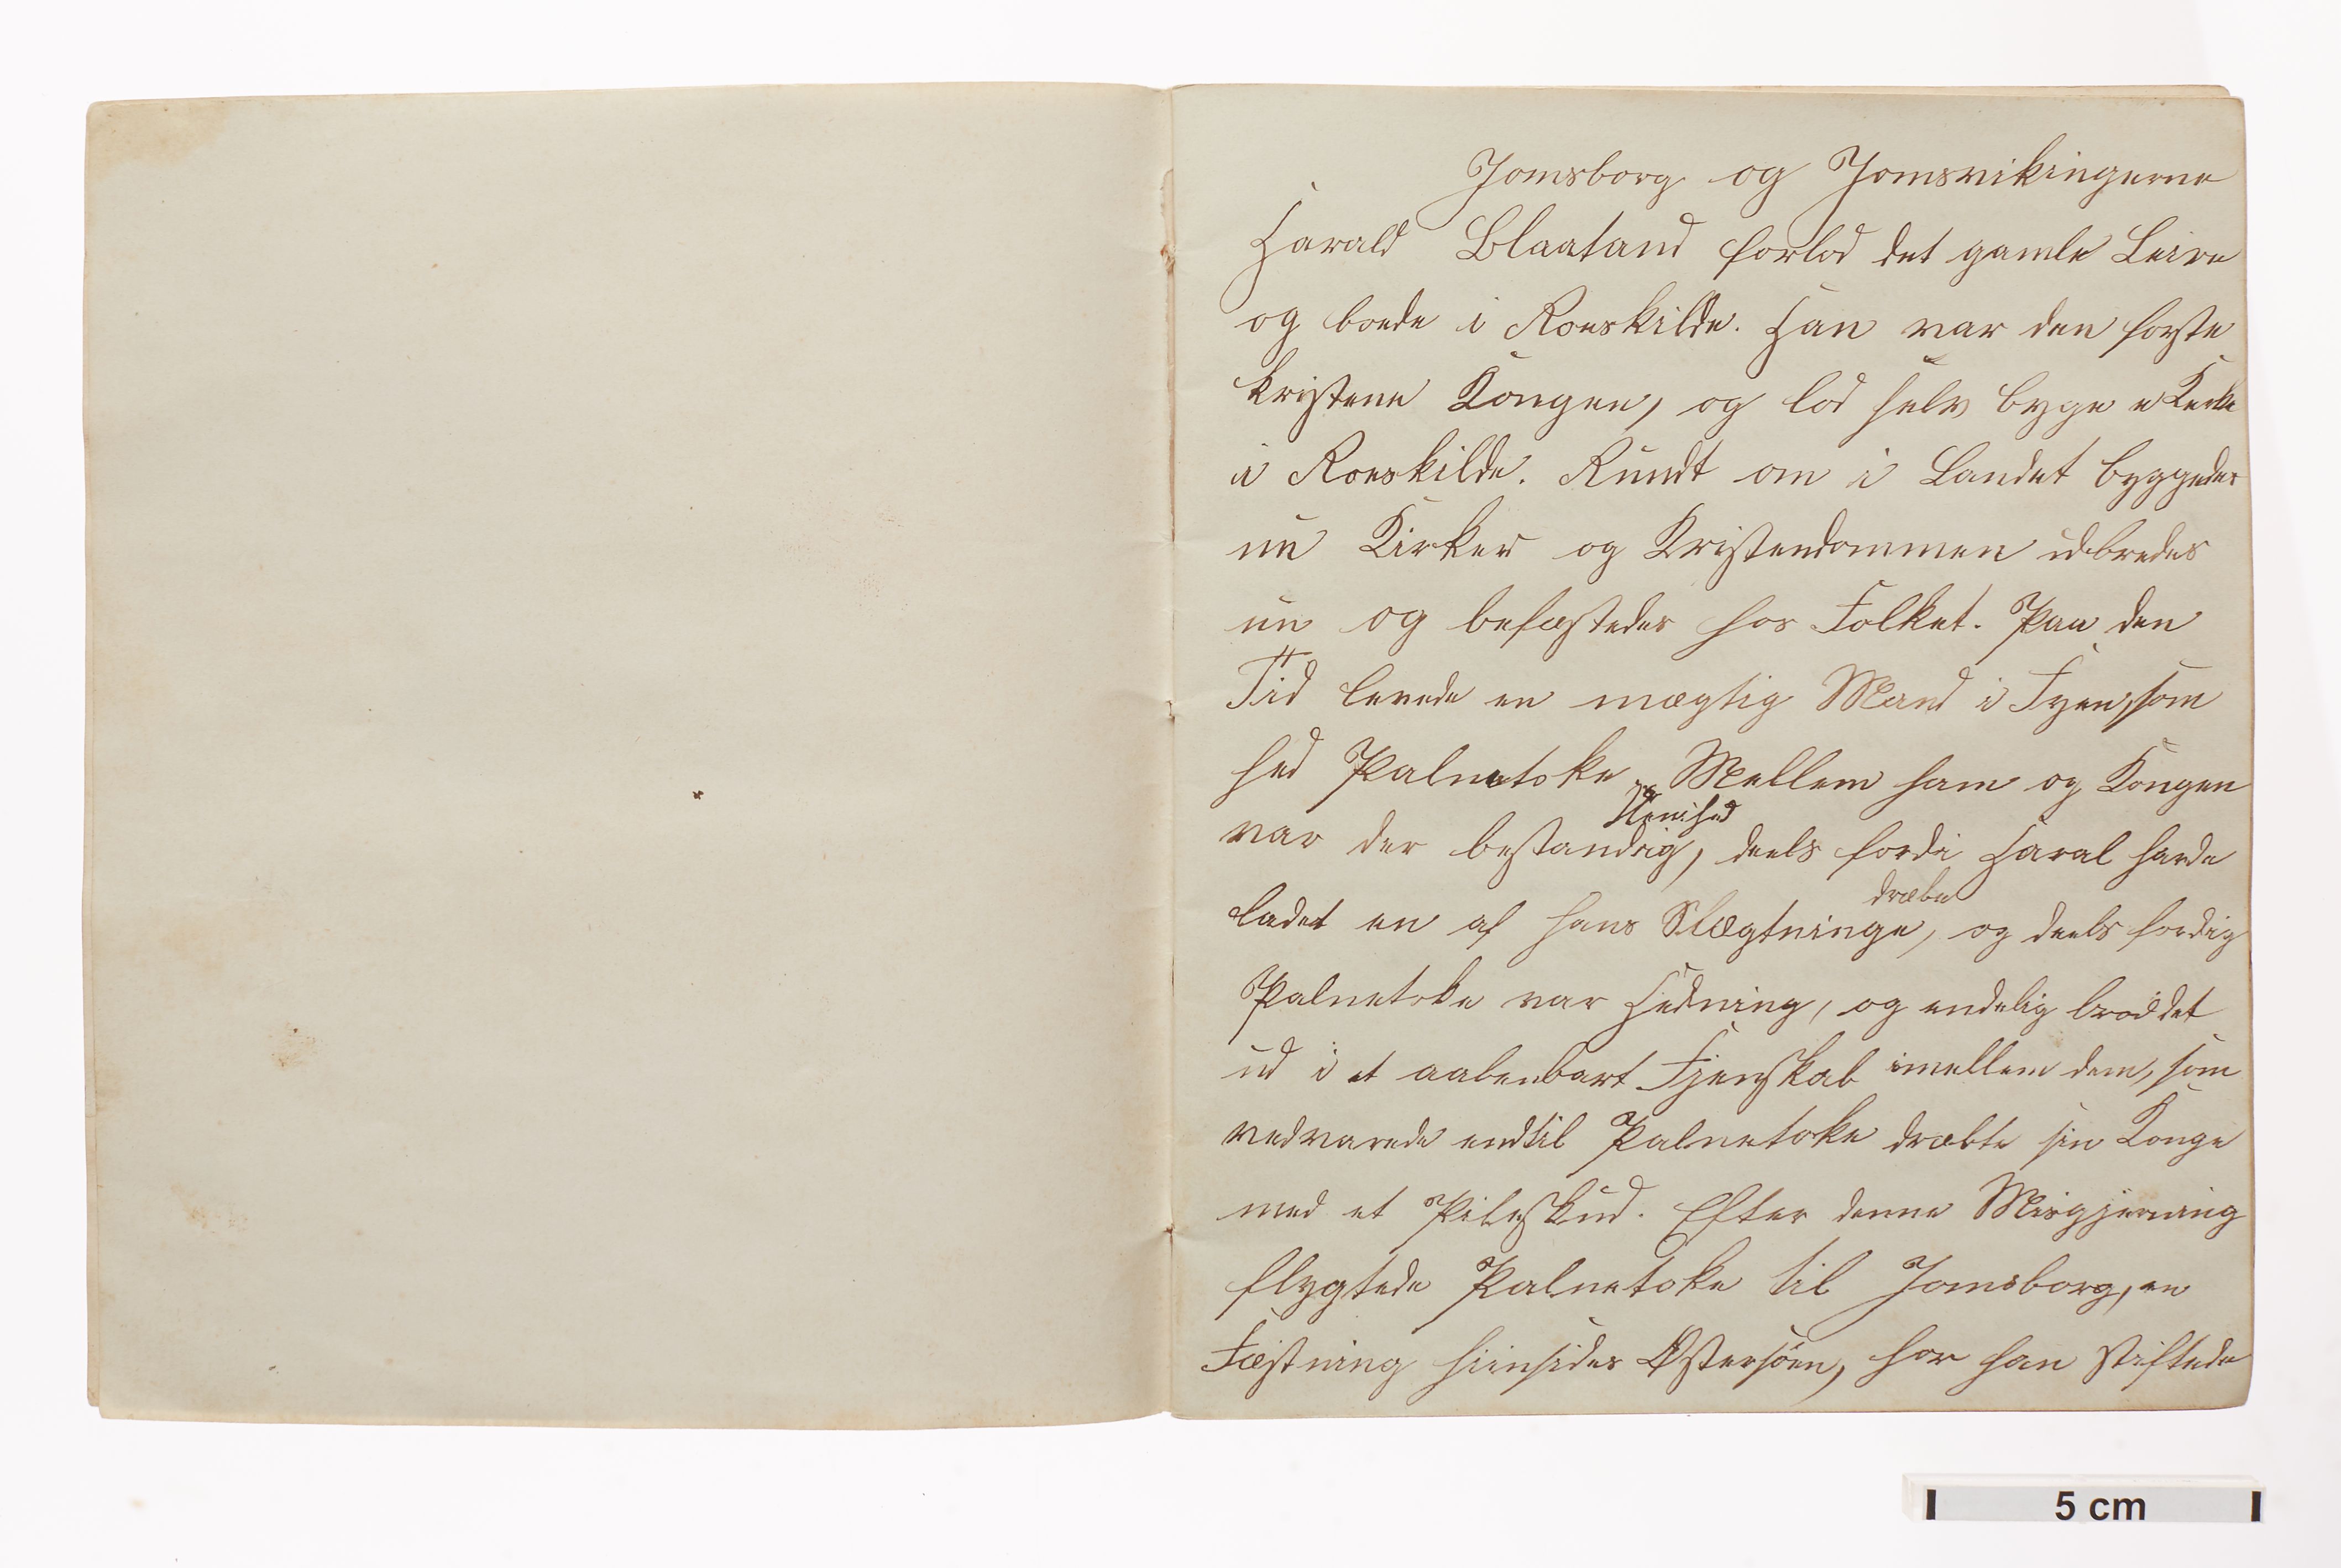 Jomsborg og Jomsvikingerne
Harald Blaatand forlod det gamle Leire
og boede i Roeskilde. Han var den forste
kristene Kongen, og lod selv byge e Kerke
i Roeskilde. Rundt om i Landet byggedes
nu Kirker og Kristendommen udbredes
nu og befæstedes hos Folket. Paa den
Tid levede en mægtig Mand i Fyen, som
hed Palnatoke. Mellem ham og Kongen
Uenihed
var der bestandig, deels fordi Haral havde
dræbe
ladet en af hans Slægtninge, og deels fordig
Palnetoke var Hedning, og endelig brød det
ud i et aabenbart Fjenskab imellem dem, som
vedvarede endtil Palnetoke dræbte sin Konge
med et Pileskud. Efter denne Misgjerning
flygtede Palnetoke til Jomsborg, en
Fæstning hiinsides Østersöen, hor han stiftede
5 cm